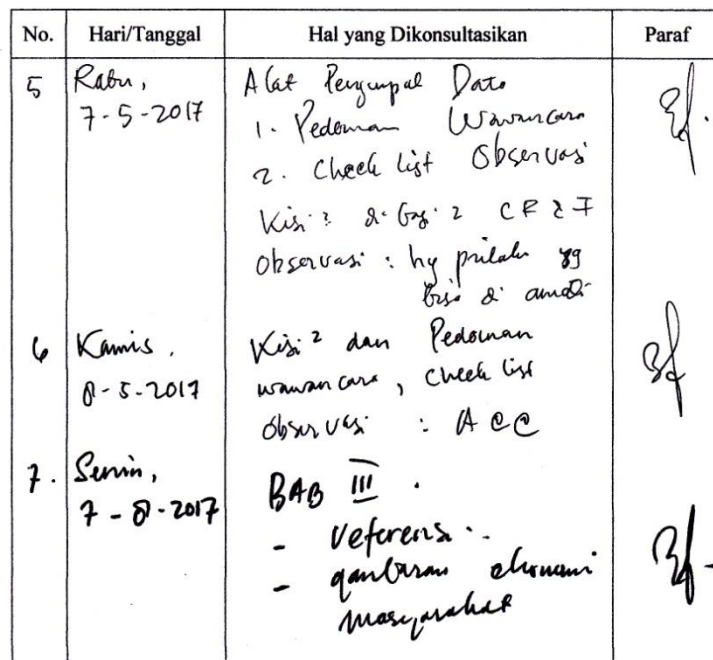 No. Hari/Tanggal Hal yang Dikonsultasikan Paraf
5 Rabu, Alat Pengumpul Data
7-5-2017 1. Pedoman Wawancara
2. Check list Observasi
Kisi 2 di bagi 2 CF &
Observasi : hy prilaku yg
bisa di amati
6 Kamis, Kisi 2 dan Pedoman
8-5-2017 wawancara, check list
observasi : Acc
7. Senin, BAB III .
7-8-2017 - referensi
- gambaran ekonomi
masyarakat